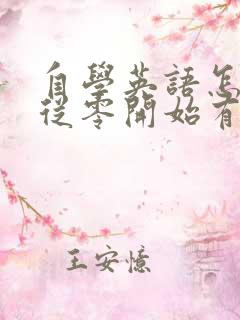 自學英語怎
從零開始有
王安憶